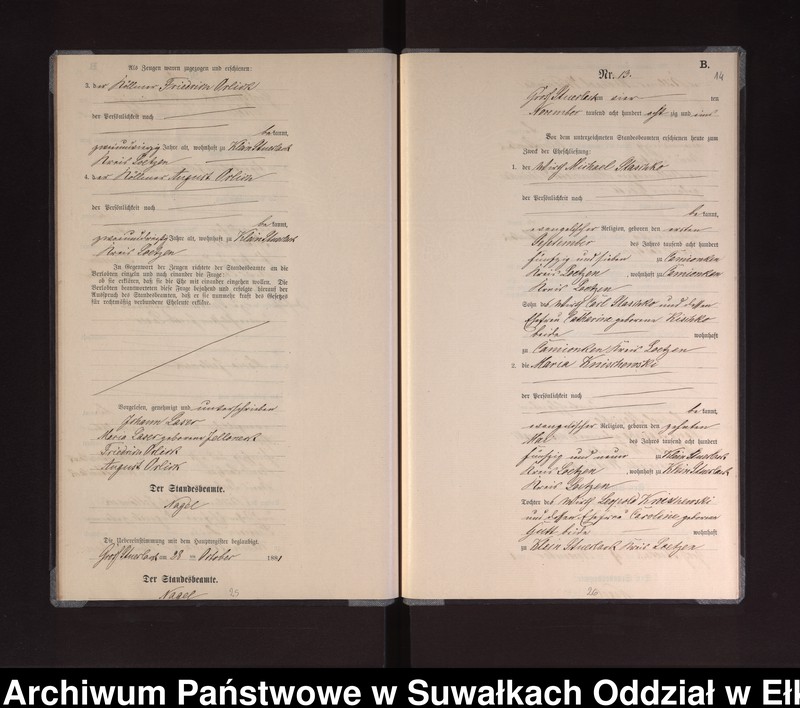 Als Zeugen waren zugezogen und erschienen:
3. der Köllmer Friedrich Orlick
der Persönlichkeit nach
be kannt,
zweiundvierzig Jahre alt, wohnhaft zu Klein Stuerlack
Kreis Loetzen
4. der Köllmer August Orlick
der Persönlichkeit nach
be kannt,
Jahre alt, wohnhaft zu Klein Stuerlack
Kreis Loetzen
In Gegenwart der Zeugen richtete der Standesbeamte an die
Verlobten einzeln und nach einander die Frage:
ob sie erklären, daß sie die Ehe mit einander eingehen wollen. Die
Verlobten beantworteten diese Frage bejahend und erfolgte hierauf der
Ausspruch des Standesbeamten, daß er sie nunmehr kraft des Gesetzes
für rechtmäßig verbundene Eheleute erkläre.
Vorgelesen, genehmigt und unterschrieben
Johann Laser
Maria Laser geborene
Friedrich Orlick
August Orlick
Der Standesbeamte.
Nagel
Die Uebereinstimmung mit dem Hauptregister beglaubigt.
Groß Stuerlack am 28 ten October 1881
Der Standesbeamte.
Nagel
25
B.
14
Nr. 13.
Groß Stuerlack am vier ten
November tausend acht hundert acht zig und eins
Vor dem unterzeichneten Standesbeamten erschienen heute zum
Zweck der Eheschließung:
1. der Wirth Michael Staschko
der Persönlichkeit nach
be kannt,
evangelischer Religion, geboren den ersten
September des Jahres tausend acht hundert
fünfzig und sieben zu Camionken
Kreis Loetzen, wohnhaft zu Camionken
Kreis Loetzen
Sohn des Wirth Carl Staschko und dessen
Ehefrau Catharine geborene Kischko
beide wohnhaft
zu Camionken Kreis Loetzen
2. die Maria Knischewski
der Persönlichkeit nach
be kannt,
evangelischer Religion, geboren den zehnten
Mai des Jahres tausend acht hundert
fünfzig und neun zu Klein Stuerlack
Kreis Loetzen, wohnhaft zu Klein Stuerlack
Kreis Loetzen
Tochter des Wirth Leopold Knischewski
und dessen Ehefrau Caroline geborene
beide wohnhaft
zu Klein Stuerlack Kreis Loetzen
26
Archiwum Państwowe w Suwałkach Oddział w Ełk